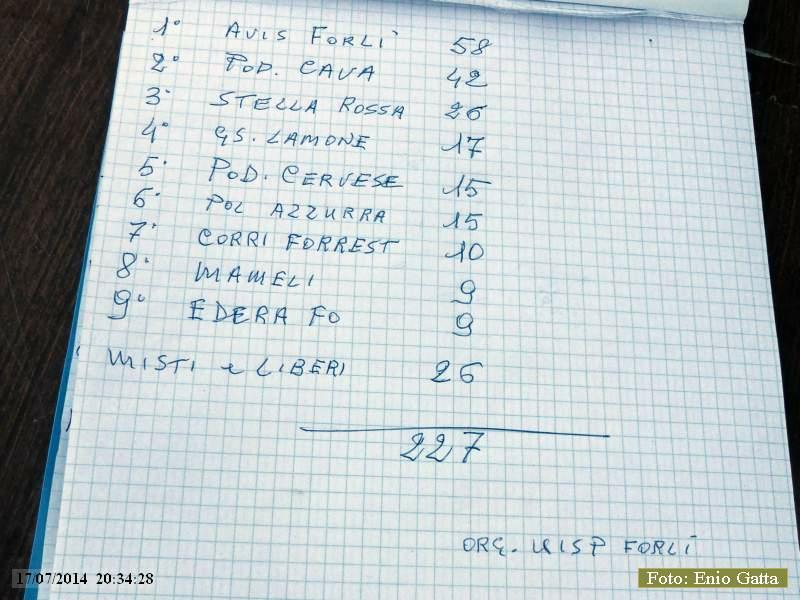 1° AVIS FORLI' 58
2° POD. CAVA 42
3° STELLA ROSSA 26
4° GS. LAMONE 17
5° POD. CERVESE 15
6° POL AZZURRA 15
7° CORRI FORREST 10
8° MAMELI 9
9° EDERA FO 9
MISTI e LIBERI 26
227
ORG. UISP FORLÌ
17/07/2014 20:34:28
Foto: Enio Gatta